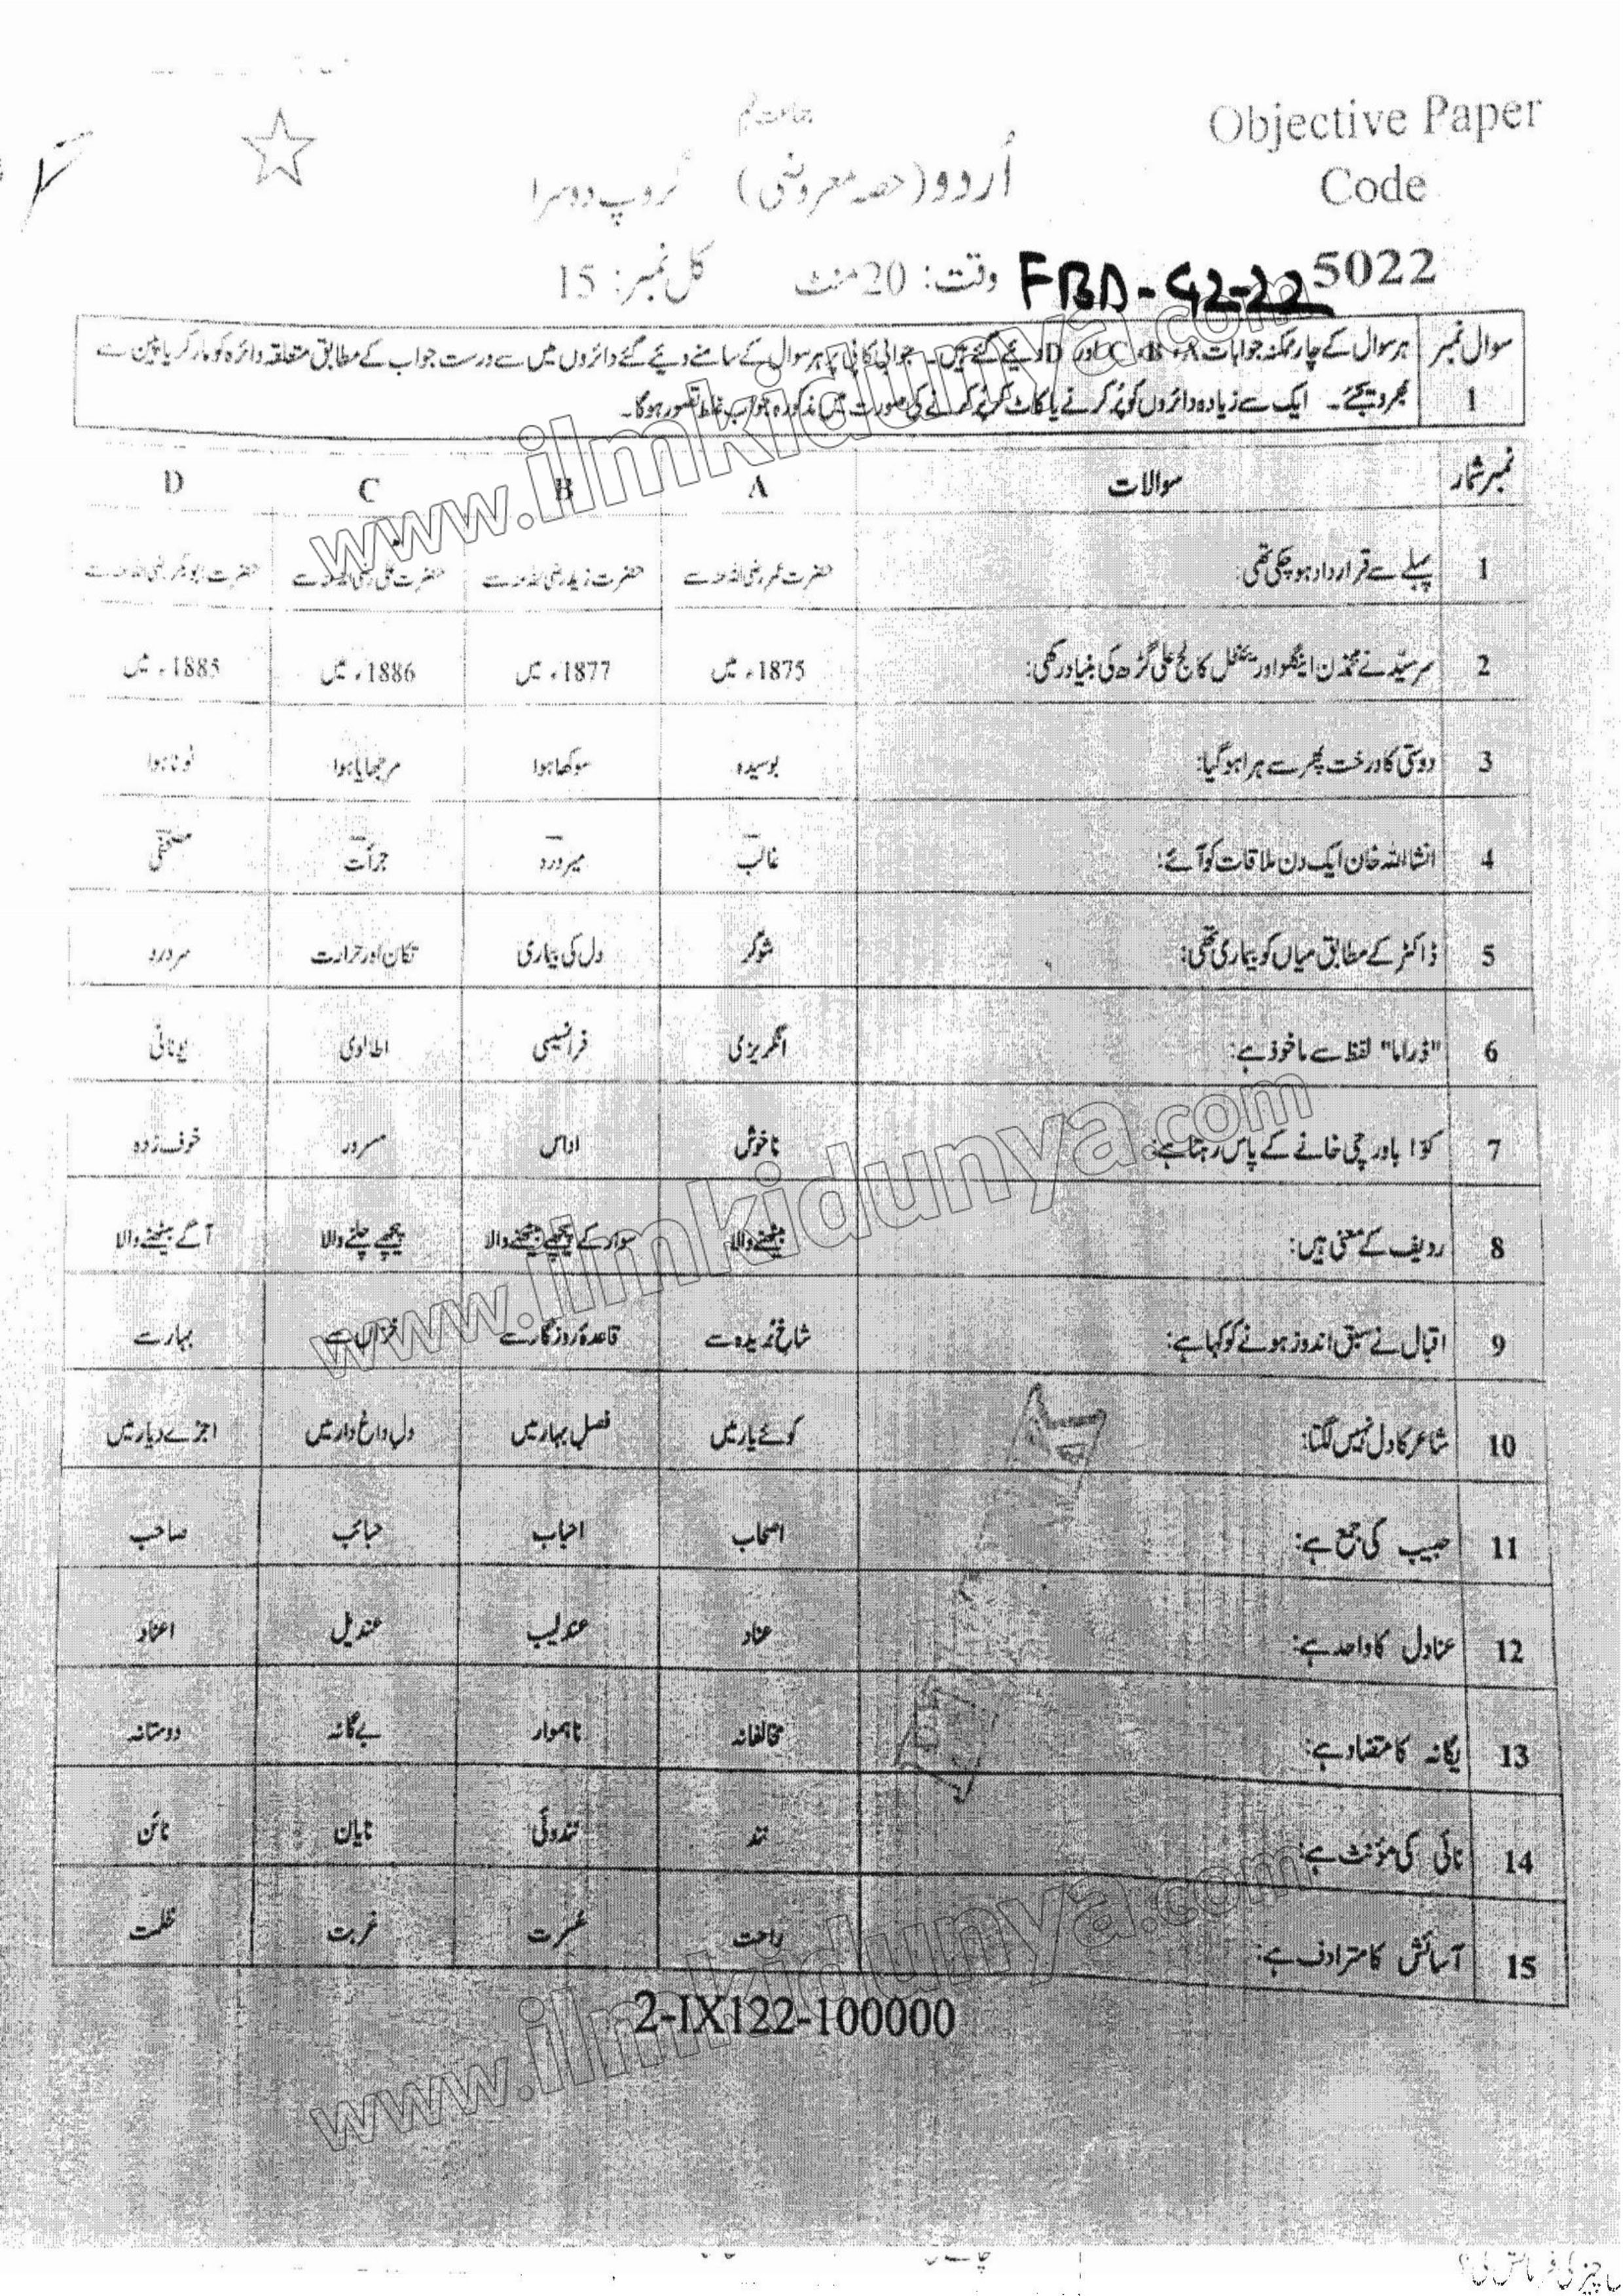 Objective Paper
Code
5022
جماعت نہم
اُردو (حصہ معروضی) گروپ دوسرا
وقت: 20 منٹ کل نمبر: 15
FBD-G2-22
سوال نمبر 1 ہر سوال کے چار ممکنہ جوابات A، B، C اور D دیئے گئے ہیں۔ جوابی کاپی پر ہر سوال کے سامنے دیئے گئے دائروں میں سے درست جواب کے مطابق متعلقہ دائرہ کو مارکر یا پین سے
بھر دیجئے۔ ایک سے زیادہ دائروں کو پُر کرنے یا کاٹ کر پُر کرنے کی صورت میں مذکورہ جواب غلط تصور ہوگا۔
نمبر شمار سوالات A B C D
1 پہلے سے قرارداد ہو چکی تھی: حضرت عمر رضی اللہ عنہ سے حضرت زید رضی اللہ عنہ سے حضرت علی رضی اللہ عنہ سے حضرت ابوبکر رضی اللہ عنہ سے
2 سر سیّد نے محمڈن اینگلو اورینٹل کالج علی گڑھ کی بنیاد رکھی: 1875ء میں 1877ء میں 1886ء میں 1885ء میں
3 دوستی کا درخت پھر سے ہرا ہو گیا: بوسیدہ سوکھا ہوا مرجھایا ہوا ٹوٹا ہوا
4 انشاءاللہ خان ایک دن ملاقات کو آئے: غالب میر درد جرأت مصحفی
5 ڈاکٹر کے مطابق میاں کو بیماری تھی: شوگر دل کی بیماری تکان اور حرارت سر درد
6 "ڈراما" لفظ سے ماخوذ ہے: انگریزی فرانسیسی اطالوی یونانی
7 کوّا باورچی خانے کے پاس رہتا ہے: ناخوش اداس مسرور خوف زدہ
8 ردیف کے معنی ہیں: بیٹھنے والا سوار کے پیچھے بیٹھنے والا پیچھے چلنے والا آگے بیٹھنے والا
9 اقبال نے سبق اندوز ہونے کو کہا ہے: شاخ بُریدہ سے قاعدۂ روزگار سے خزاں سے بہار سے
10 شاعر کا دل نہیں لگتا: کوئے یار میں فصلِ بہار میں دلِ داغ دار میں اجڑے دیار میں
11 حبیب کی جمع ہے: اصحاب احباب حبائب صاحب
12 عنادل کا واحد ہے: عناد عندلیب عندیل اعناد
13 یگانہ کا متضاد ہے: مخالفانہ ناہموار بے گانہ دوستانہ
14 نائی کی مؤنث ہے: نند نندوئی نایان نائن
15 آسائش کا مترادف ہے: راحت عسرت غربت ظلمت
2-IX122-100000
www.ilmkidunya.com
www.ilmkidunya.com
www.ilmkidunya.com